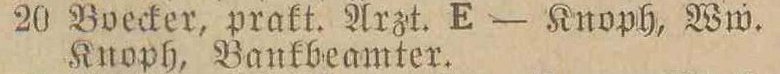 20 Boecker, prakt. Arzt. E — Knoph, Ww.
Knoph, Bankbeamter.